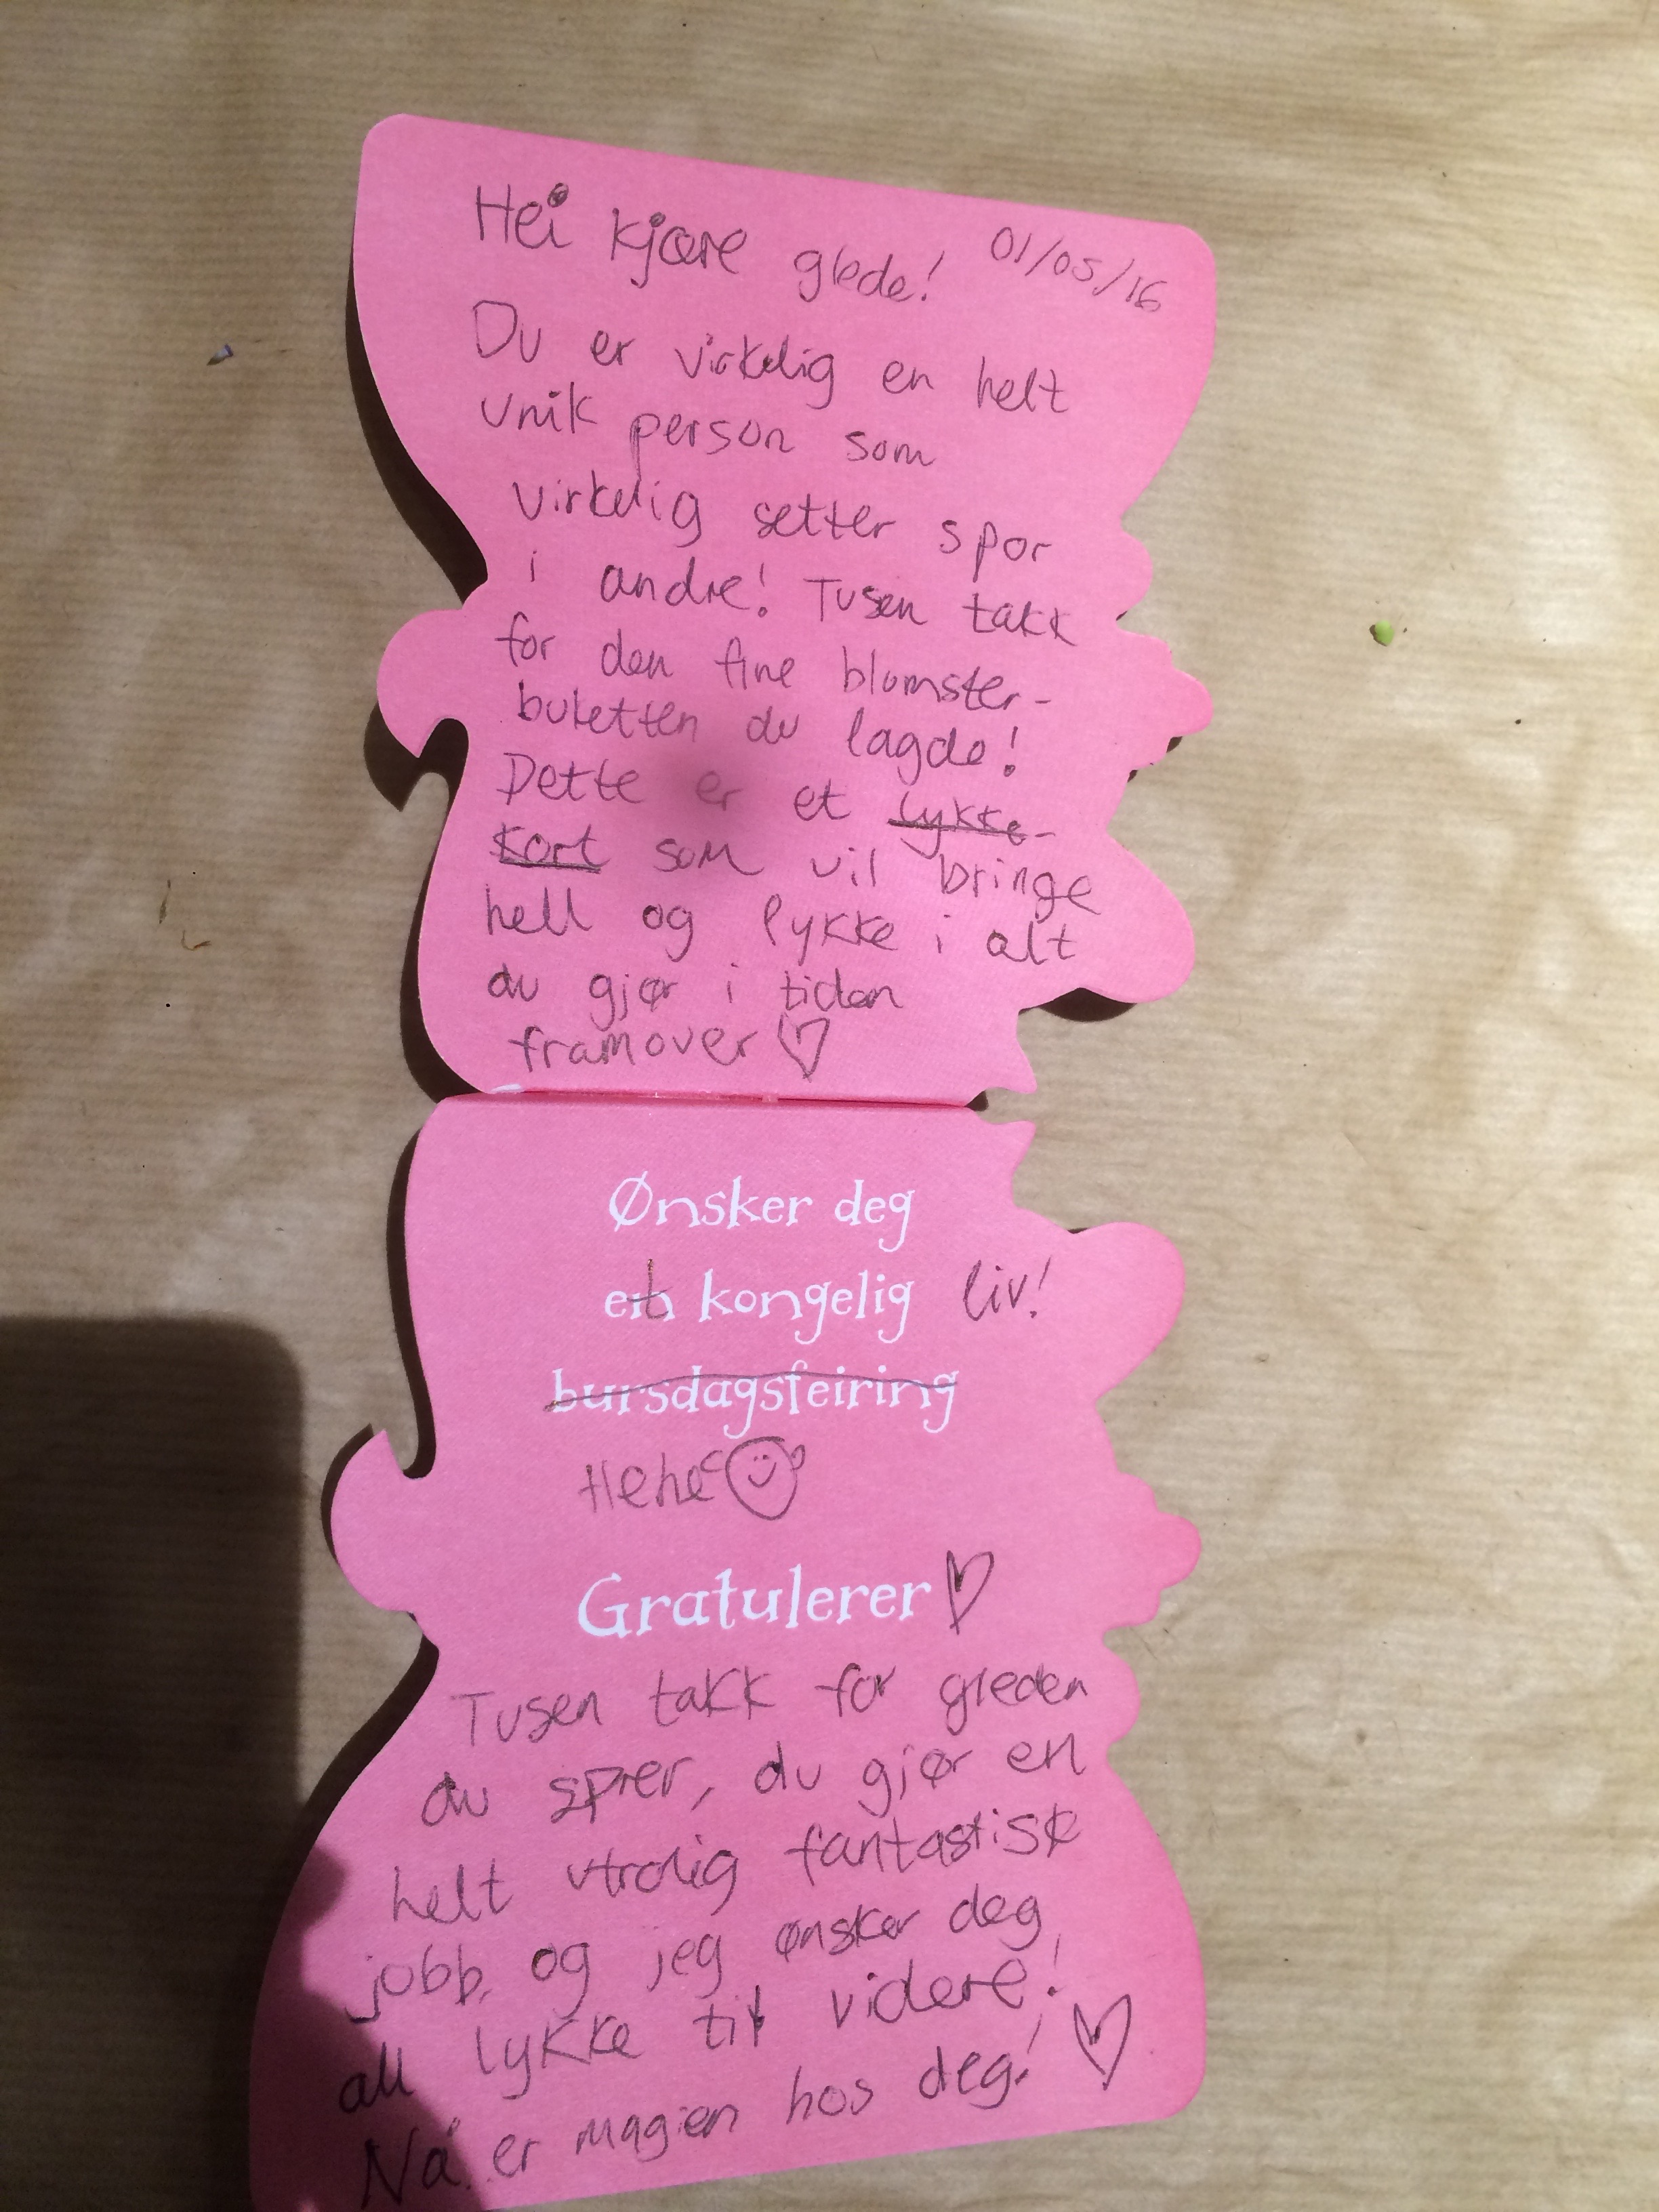 Hei kjære glede! 01/05/16
Du er virkelig en helt
unik person som
virkelig setter spor
i andre! Tusen takk
for den fine blomster-
buketten du lagde!
Dette er et lykke-
kort som vil bringe
hell og lykke i alt
du gjør i tiden
framover ♡
Ønsker deg
et kongelig liv!
bursdagsfeiring
Hehe
Gratulerer ♡
Tusen takk for gleden
du sprer, du gjør en
helt utrolig fantastisk
jobb, og jeg ønsker deg
all lykke til videre!
Nå er magien hos deg! ♡